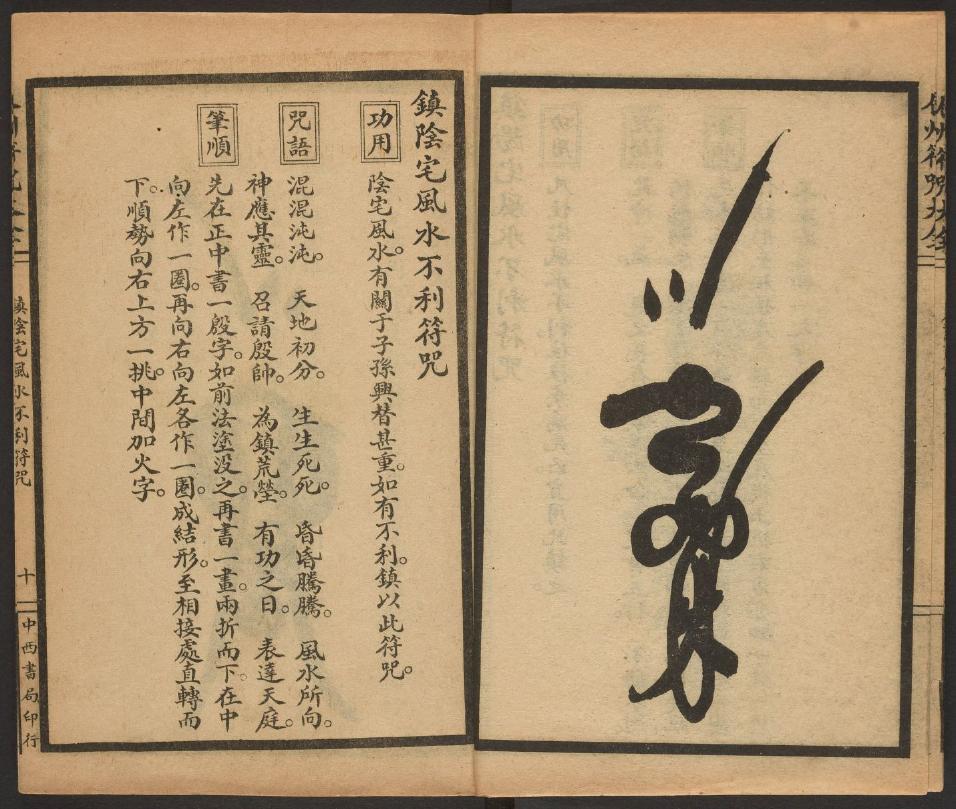 鎮陰宅風水不利符咒
功用
陰宅風水。有關于子孫興替甚重。如有不利。鎮以此符咒。
咒語
混混沌沌。天地初分。生生死死。昏昏騰騰。風水所向。
神應其靈。召請殷帥。為鎮荒塋。有功之日。表達天庭。
筆順
先在正中書一殷字。如前法塗没之。再書一畫。兩折而下。在中
向左作一圈。再向右向左各作一圈。成結形。至相接處直轉而
下。順勢向右上方一挑。中間加火字。
鎮陰宅風水不利符咒
十
中西書局印行